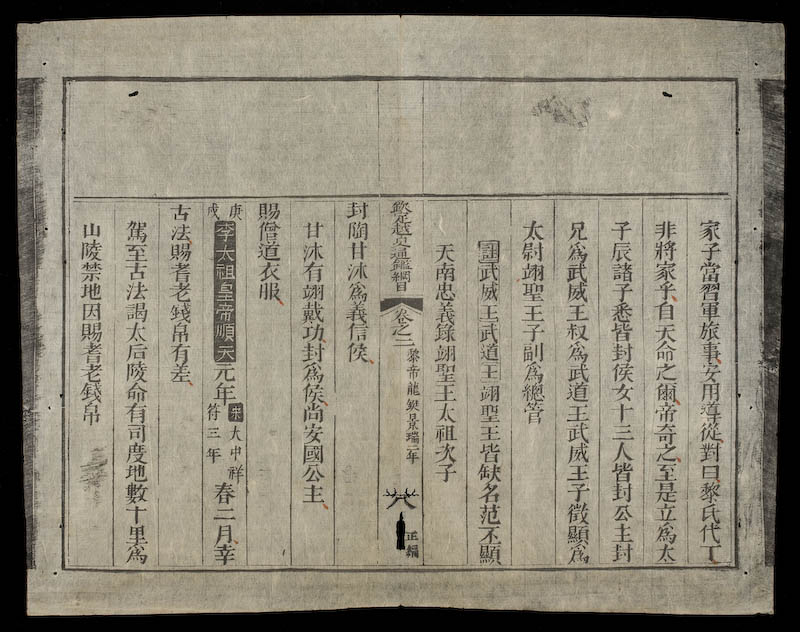 家子當習軍旅事安用導從對曰黎氏代丁
非將家乎自天命之爾帝奇之至是立爲太
子辰諸子悉皆封侯女十三人皆封公主封
兄爲武威王叔爲武道王武威王子徵顯爲
太尉翊聖王子副爲總管
註武威王武道王翊聖王皆缺名范丕顯
天南忠義錄翊聖王太祖次子
欽定越史通鑑綱目 卷之二 黎帝龍鋌景瑞二年 八 正編
封陶甘沐爲義信侯
甘沐有翊戴功封爲侯尚安國公主
賜僧道衣服
庚戌李太祖皇帝順天元年宋大中祥符三年春二月幸
古法賜耆老錢帛有差
駕至古法謁太后陵命有司度地數十里爲
山陵禁地因賜耆老錢帛